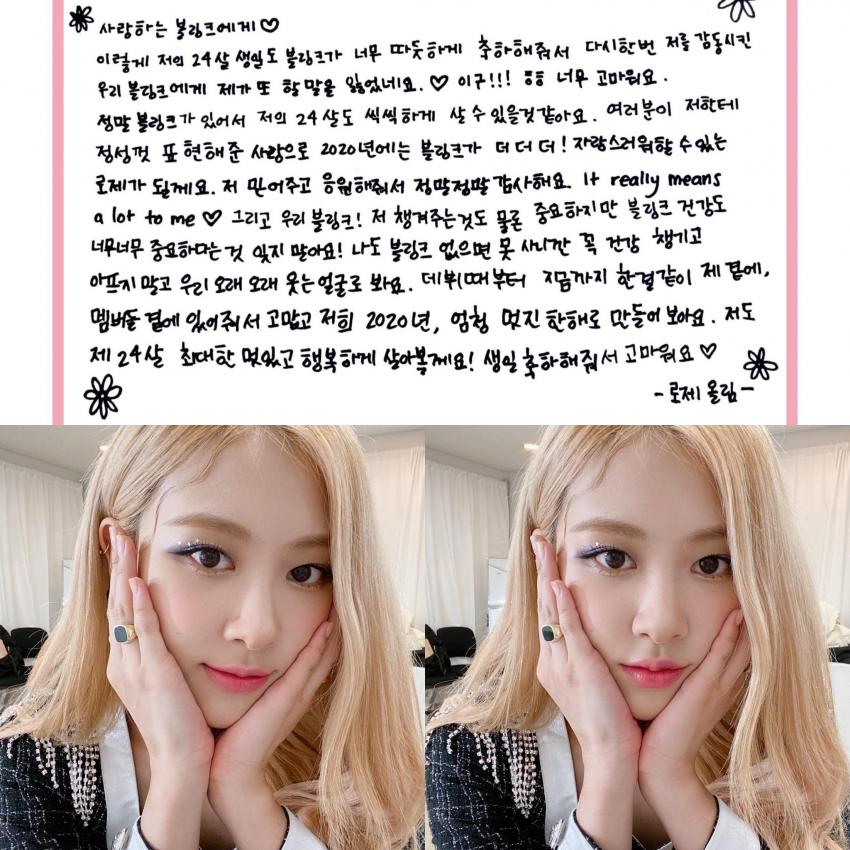 사랑하는 블링크에게♡
이렇게 저의 24살 생일도 블링크가 너무 따듯하게 축하해줘서 다시한번 저를 감동시킨
우리 블링크에게 제가 또 할 말을 잃었네요. ♡ 이구!!! ㅎㅎ 너무 고마워요.
정말 블링크가 있어서 저의 24살도 씩씩하게 살 수 있을것같아요. 여러분이 저한테
정성껏 표현해준 사랑으로 2020년에는 블링크가 더 더 더! 자랑스러워할 수 있는
로제가 될게요. 저 믿어주고 응원해줘서 정말정말 감사해요. It really means
a lot to me ♡ 그리고 우리 블링크! 저 챙겨주는것도 물론 중요하지만 블링크 건강도
너무너무 중요하다는 것 잊지 말아요! 나도 블링크 없으면 못 사니깐 꼭 건강 챙기고
아프지 말고 우리 오래 오래 웃는얼굴로 봐요. 데뷔때부터 지금까지 한결같이 제 곁에,
멤버들 곁에 있어줘서 고맙고 저희 2020년, 엄청 멋진 한해로 만들어 보아요. 저도
제 24살 최대한 멋있고 행복하게 살아볼게요! 생일 축하해줘서 고마워요♡
-로제 올림-